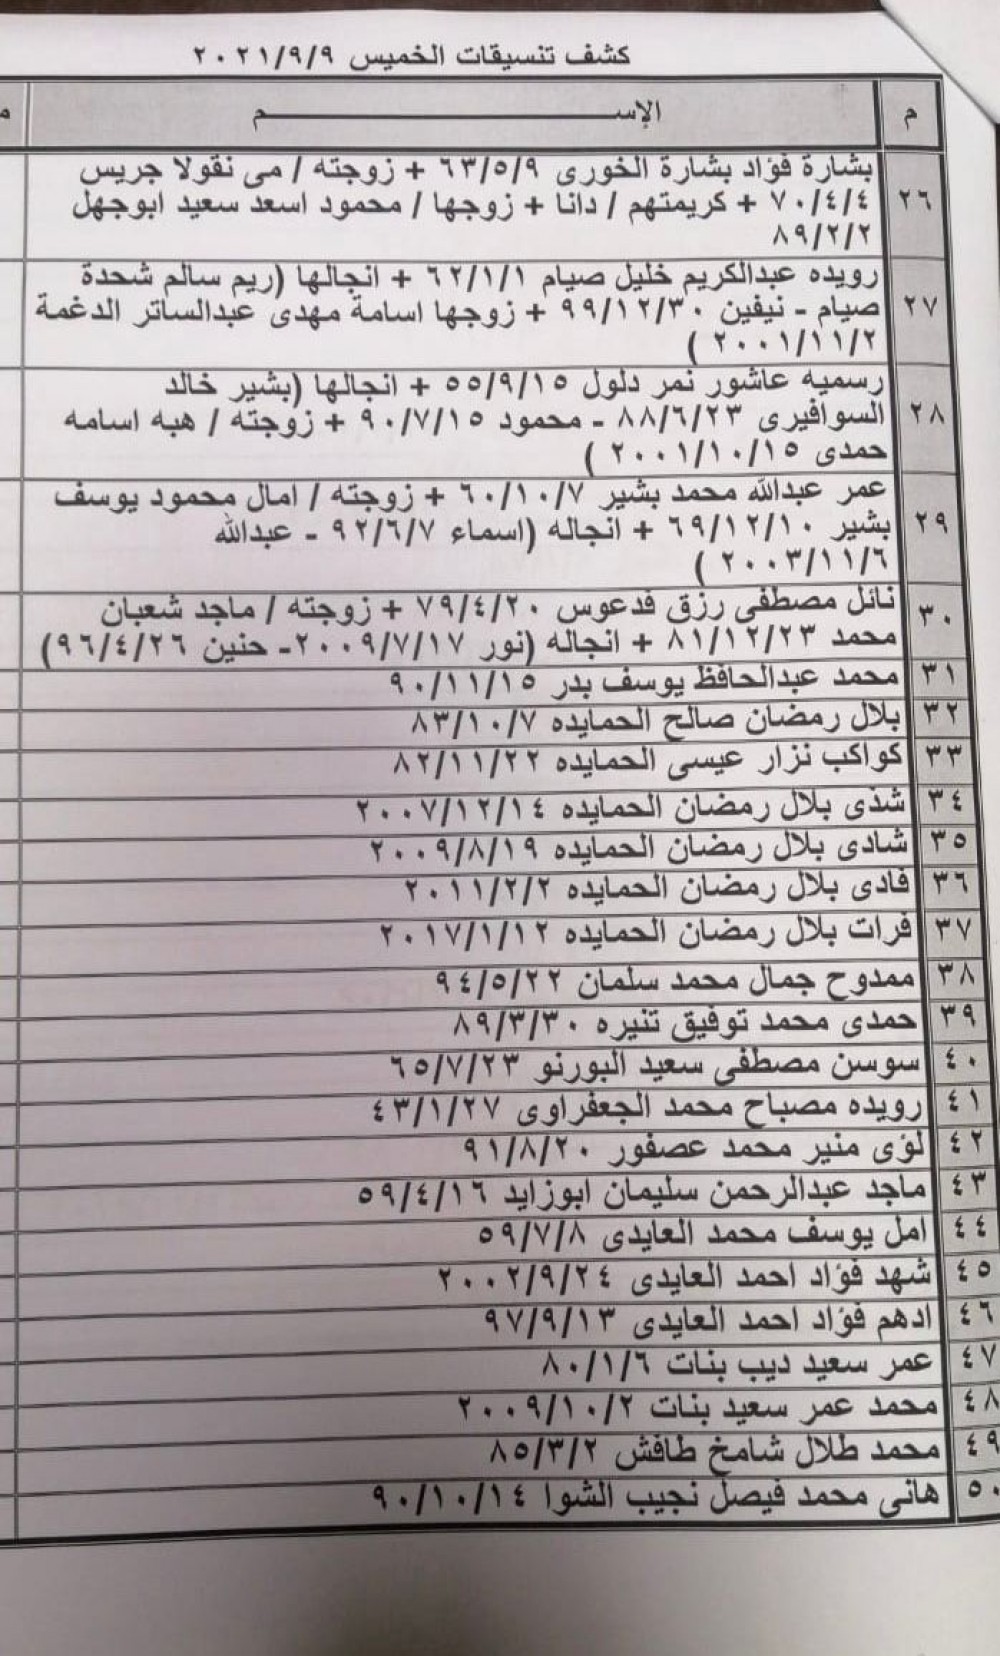 كشف تنسيقات الخميس ٢٠٢١/٩/٩
م الإســــــــــــــم م
٢٦ بشارة فؤاد بشارة الخورى ٦٣/٥/٩ + زوجته / مى نقولا جريس
٧٠/٤/٤ + كريمتهم / دانا + زوجها / محمود اسعد سعيد ابوجهل
٨٩/٢/٢
٢٧ رويده عبدالكريم خليل صيام ٦٢/١/١ + انجالها (ريم سالم شحدة
صيام - نيفين ٩٩/١٢/٣٠ + زوجها اسامة مهدى عبدالساتر الدغمة
٢٠٠١/١١/٢ )
٢٨ رسميه عاشور نمر دلول ٥٥/٩/١٥ + انجالها (بشير خالد
السوافيرى ٨٨/٦/٢٣ - محمود ٩٠/٧/١٥ + زوجته / هبه اسامه
حمدى ٢٠٠١/١٠/١٥ )
٢٩ عمر عبدالله محمد بشير ٦٠/١٠/٧ + زوجته / امال محمود يوسف
بشير ٦٩/١٢/١٠ + انجاله (اسماء ٩٢/٦/٧ - عبدالله
٢٠٠٣/١١/٦ )
٣٠ نائل مصطفى رزق قدعوس ٧٩/٤/٢٠ + زوجته / ماجد شعبان
محمد ٨١/١٢/٢٣ + انجاله (نور ٢٠٠٩/٧/١٧- حنين ٩٦/٤/٢٦)
٣١ محمد عبدالحافظ يوسف بدر ٩٠/١١/١٥
٣٢ بلال رمضان صالح الحمايده ٨٣/١٠/٧
٣٣ كواكب نزار عيسى الحمايده ٨٢/١١/٢٢
٣٤ شذى بلال رمضان الحمايده ٢٠٠٧/١٢/١٤
٣٥ شادى بلال رمضان الحمايده ٢٠٠٩/٨/١٩
٣٦ فادى بلال رمضان الحمايده ٢٠١١/٢/٢
٣٧ فرات بلال رمضان الحمايده ٢٠١٧/١/١٢
٣٨ ممدوح جمال محمد سلمان ٩٤/٥/٢٢
٣٩ حمدى محمد توفيق تنيره ٨٩/٣/٣٠
٤٠ سوسن مصطفى سعيد البورنو ٦٥/٧/٢٣
٤١ رويده مصباح محمد الجعفراوى ٤٣/١/٢٧
٤٢ لؤى منير محمد عصفور ٩١/٨/٢٠
٤٣ ماجد عبدالرحمن سليمان ابوزايد ٥٩/٤/١٦
٤٤ امل يوسف محمد العايدى ٥٩/٧/٨
٤٥ شهد فؤاد احمد العايدى ٢٠٠٢/٩/٢٤
٤٦ ادهم فؤاد احمد العايدى ٩٧/٩/١٣
٤٧ عمر سعيد ديب بنات ٨٠/١/٦
٤٨ محمد عمر سعيد بنات ٢٠٠٩/١٠/٢
٤٩ محمد طلال شامخ طافش ٨٥/٣/٢
٥٠ هانى محمد فيصل نجيب الشوا ٩٠/١٠/١٤